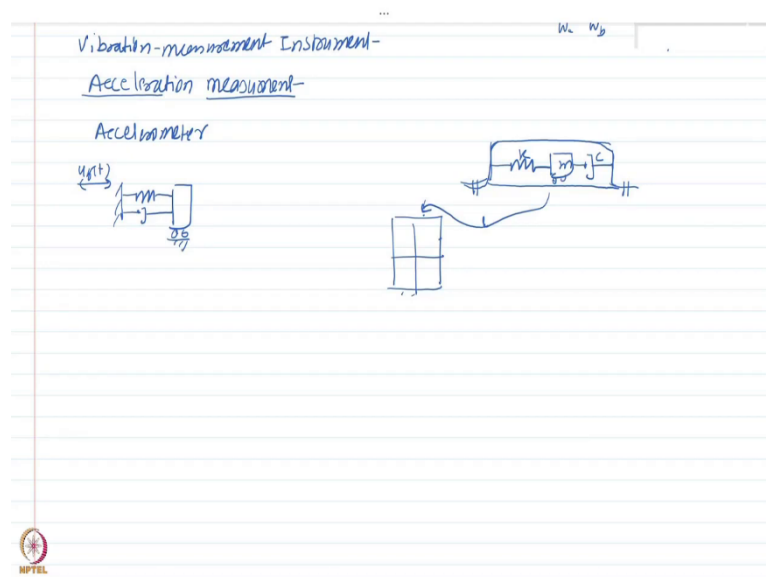 ω ω_b
Vibration-measurement Instrument-
Acceleration measurement-
Accelerometer
u_g(t)
k m c
NPTEL